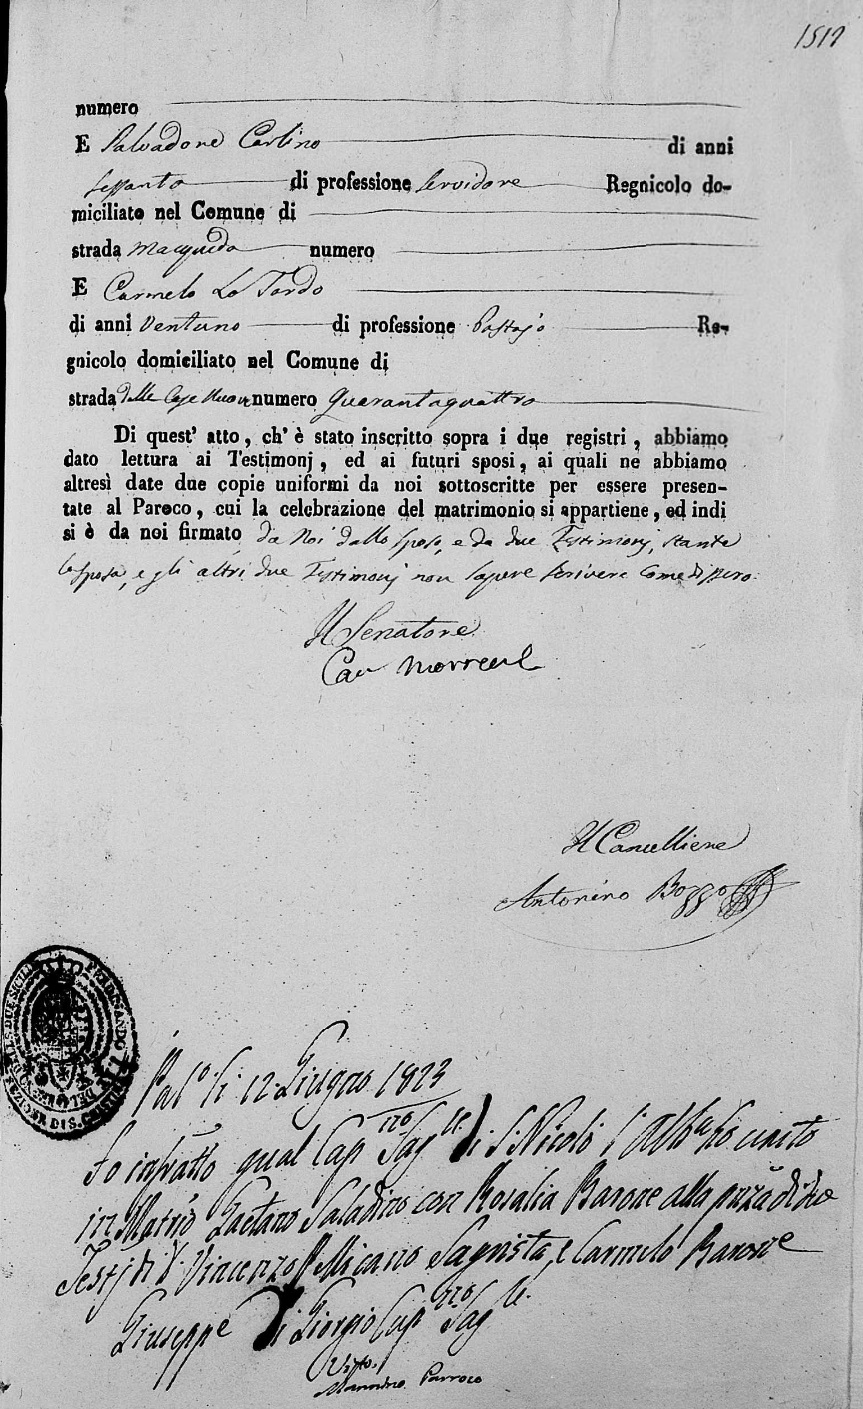 numero
E Salvadore Carlino di anni
Sessanta di professione Servidore Regnicolo do-
miciliato nel Comune di
strada Macqueda numero
E Carmelo Lo Tardo
di anni Ventuno di professione Pastajo Re-
gnicolo domiciliato nel Comune di
strada delle Case Nuove numero Quarantaquattro
Di quest' atto, ch' è stato inscritto sopra i due registri, abbiamo
dato lettura ai Testimonj, ed ai futuri sposi, ai quali ne abbiamo
altresì date due copie uniformi da noi sottoscritte per essere presen-
tate al Paroco, cui la celebrazione del matrimonio si appartiene, ed indi
si è da noi firmato da Noi dallo sposo, e da due Testimonj, stante
la sposa, e gli altri due Testimonj non sapere scrivere come dissero.
Il Senatore
Cav
Il Cancelliere
Antonino Bozzo
FERDINANDO
Pal.º li 12 Giugno 1823
Io infratto qual Cap.no Sag.le di S. Nicolò l'Alb.a ho unito
in Matrio Gaetano Saladino con Rosalia Barone alla p̃nza di due
Testj di D. Vincenzo Micano Sagrista, e Carmelo Barone
Giuseppe Di Giorgio Cap.no Sag.le
Visto.
Mannino Parroco